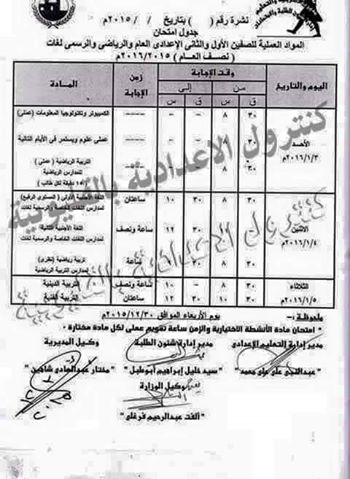 نشرة رقم ( ) بتاريخ / / ٢٠١٥م
جدول امتحان
المواد العملية للصفين الأول والثانى الإعدادى العام والرياضى والرسمى لغات
( نصف العام ) ٢٠١٦/٢٠١٥م
اليوم والتاريخ
وقت الإجابة
من
إلى
ق س ق س
زمن الإجابة
المادة
الأحد
٢٠١٦/١/٣م
٣٠ ٨
الكمبيوتر وتكنولوجيا المعلومات (عملى)
٣٠ ٨
عملى علوم ويستمر فى الأيام التالية
٣٠ ٨
التربية الرياضية (عملى)
لمدارس الرياضية
(١٥ دقيقة لكل طالب)
الاثنين
٢٠١٦/١/٤م
٣٠ ٨ ٣٠ ١٠ ساعتان
اللغة الأجنبية الأولى (المستوى الرفيع)
لمدارس اللغات الخاصة والرسمية لغات
١١ ٣٠ ١٢ ساعة ونصف
اللغة الأجنبية الثانية
لمدارس اللغات الخاصة والرسمية لغات
ساعة
تربية رياضية (نظرى)
لمدارس الرياضية
الثلاثاء
٢٠١٦/١/٥م
٣٠ ٨ ١٠ ساعة ونصف
التربية الدينية
٣٠ ١٠ ٣٠ ١٢ ساعتان
التربية الفنية
كنترول الاعدادية بالتليفونية
ملحوظة :-
* امتحان مادة الأنشطة الاختيارية والزمن ساعة تقويم عملى لكل مادة مختارة
يوم الأربعاء الموافق ٢٠١٥/١٢/٣٠م
مدير إدارة التعليم الإعدادى
مدير إدارة شئون الطلبة
وكيل المديرية
عبدالنبى على على محمد
سيد خليل إبراهيم أبوطبل
مختار عبدالهادى شاهين
وكيل الوزارة
ألفت عبدالرحيم فرغلى